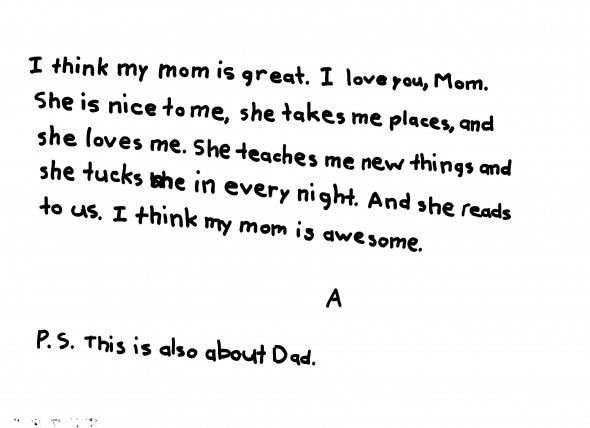 I think my mom is great. I love you, Mom.
She is nice to me, she takes me places, and
she loves me. She teaches me new things and
she tucks me in every night. And she reads
to us. I think my mom is awesome.
A
P.S. This is also about Dad.